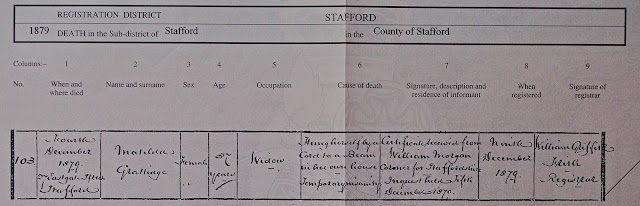 REGISTRATION DISTRICT STAFFORD
1879 DEATH in the Sub-district of Stafford in the County of Stafford
Columns:- 1 2 3 4 5 6 7 8 9
No. When and where died Name and surname Sex Age Occupation Cause of death Signature, description and residence of informant When registered Signature of registrar
103
Fourth
December
1879
Eastgate Street
Stafford
Matilda
Grattidge
Female
37
years
Widow
Hung herself by a
Cord to a Beam
in her own house
Temporary insanity
Certificate received from
William Morgan
Coroner for Staffordshire
Inquest held Fifth
December 1879.
Ninth
December
1879.
William Griffith
Registrar